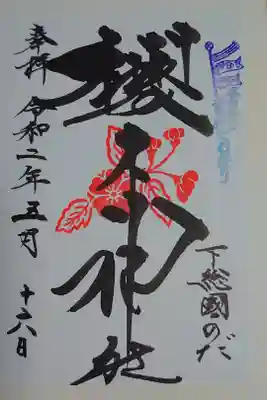 下総國のだ
櫻木神社
奉拝 令和二年五月
十六日